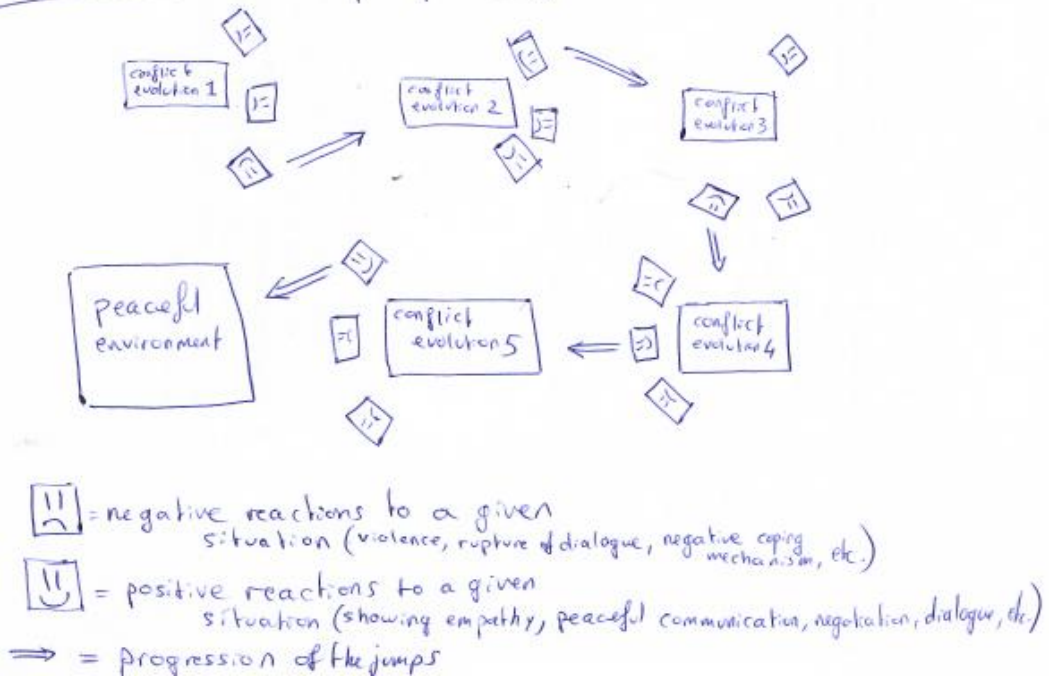 conflict
evolution 1
conflict
evolution 2
conflict
evolution 3
peaceful
environment
conflict
evolution 5
conflict
evolution 4
= negative reactions to a given
situation (violence, rupture of dialogue, negative coping
mechanism, etc.)
= positive reactions to a given
situation (showing empathy, peaceful communication, negotiation, dialogue, etc.)
⇒ = progression of the jumps